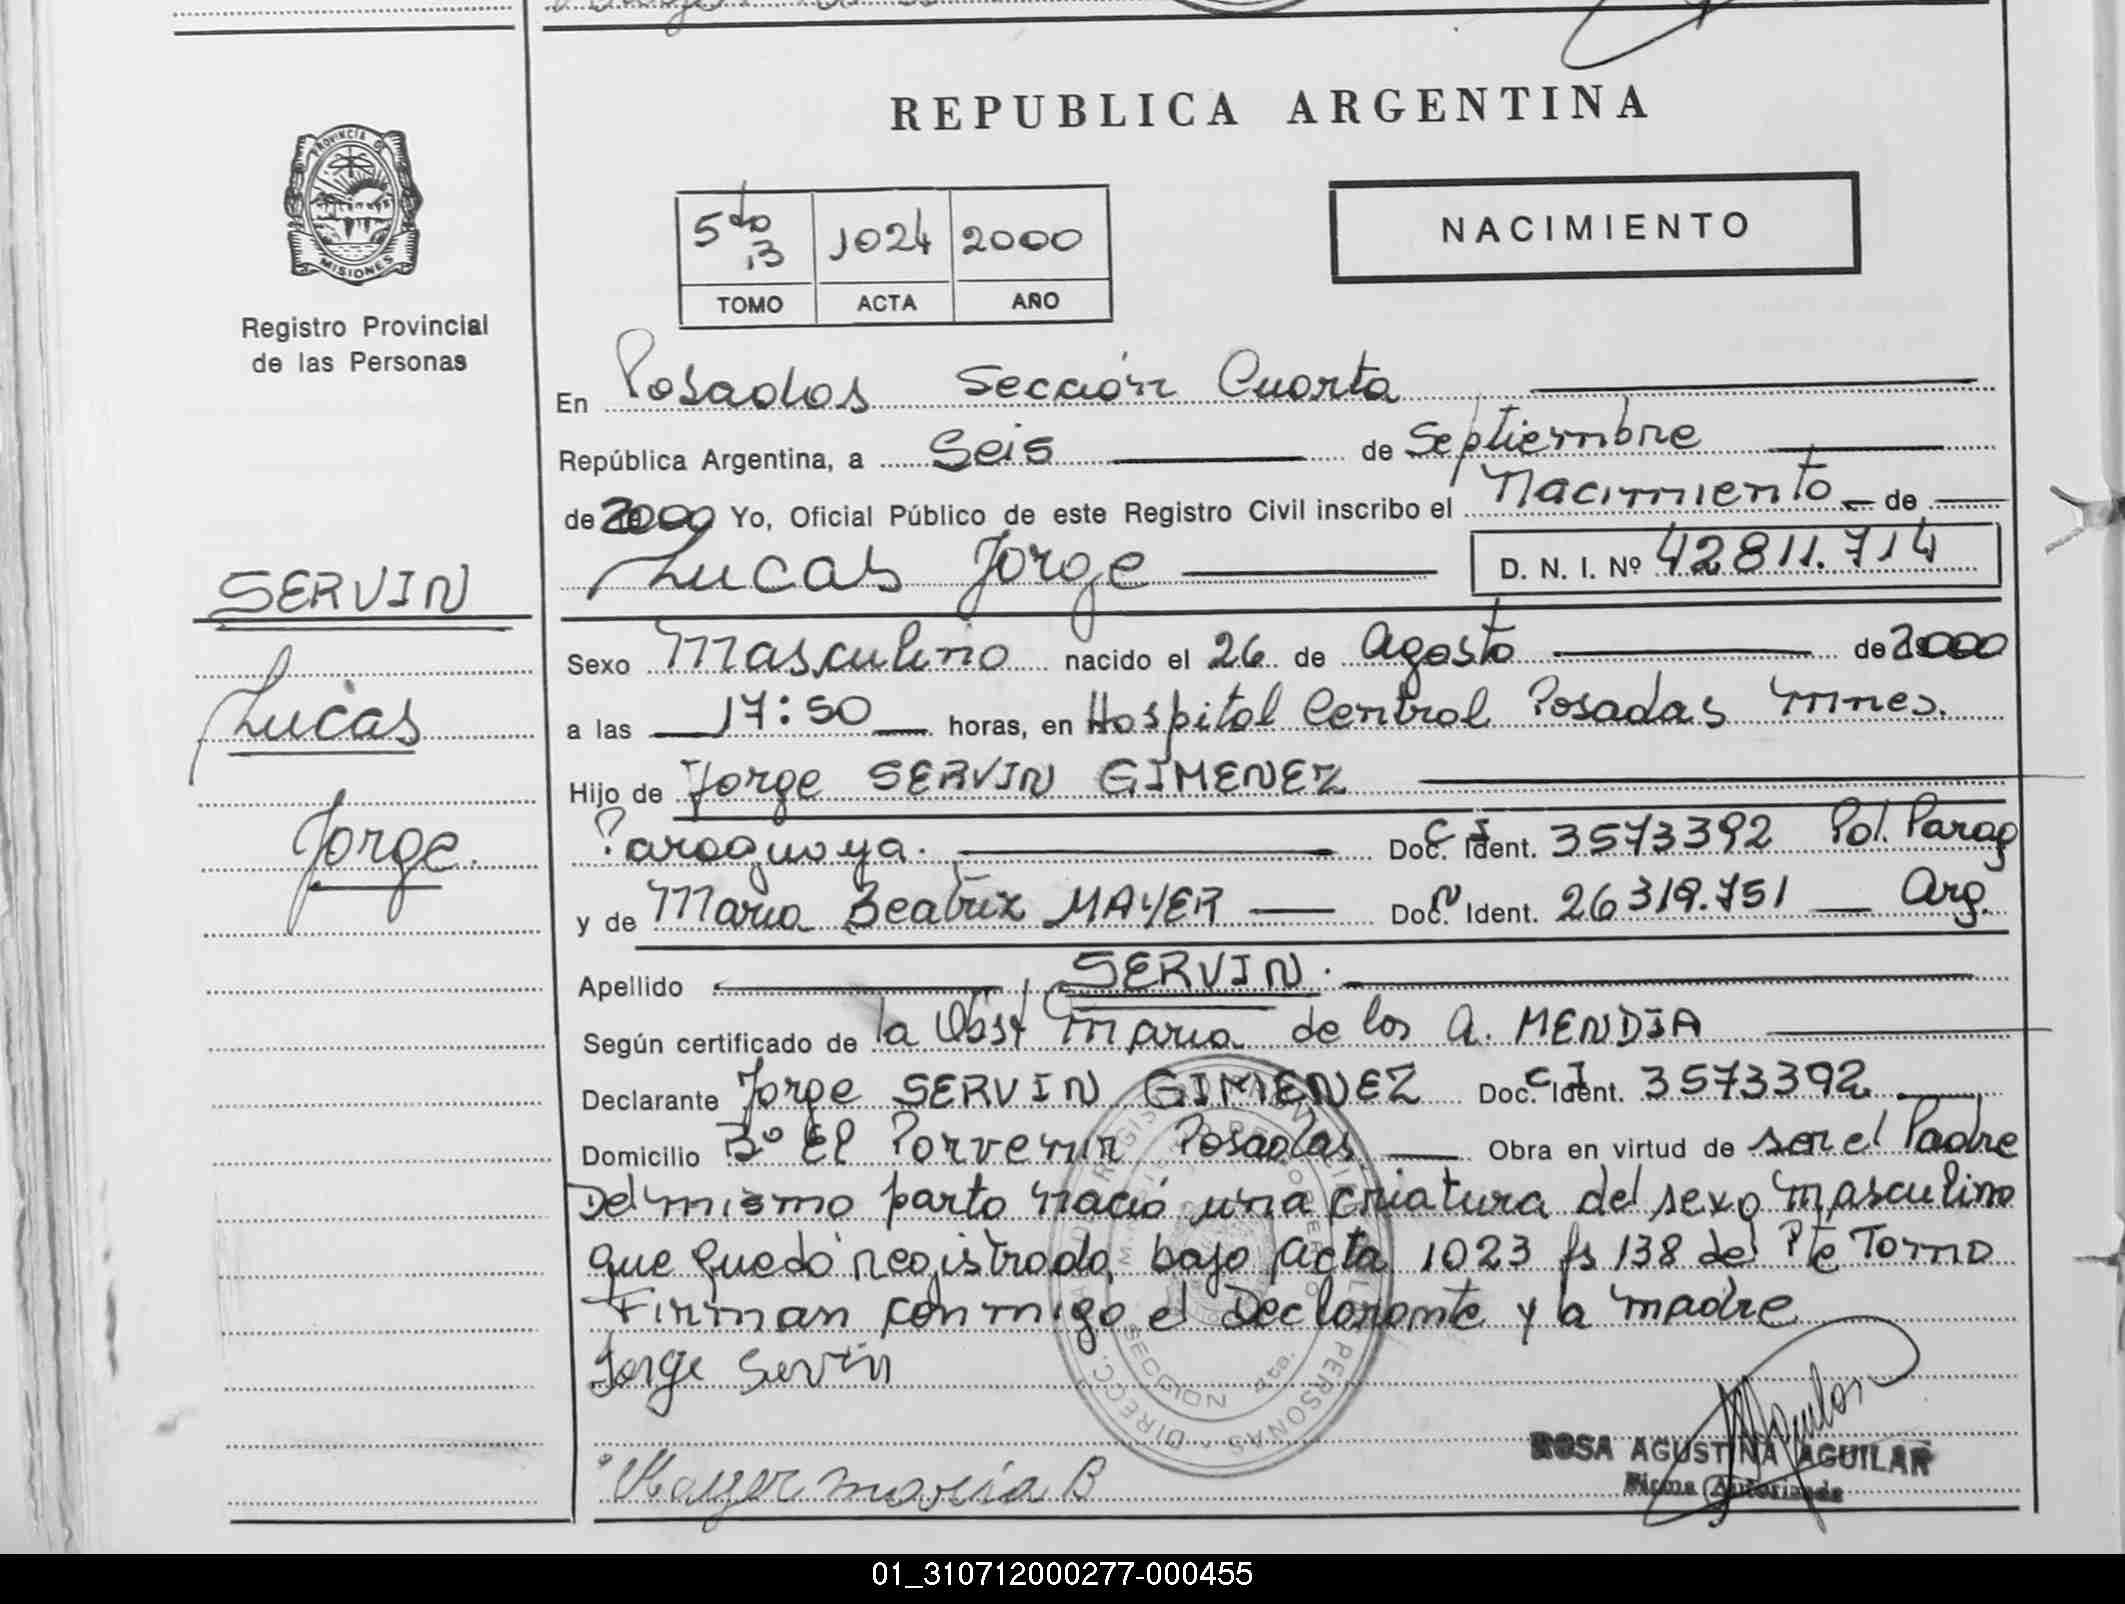 REPUBLICA ARGENTINA
PROVINCIA DE
MISIONES
Registro Provincial
de las Personas
5to B 1024 2000
TOMO ACTA AÑO
NACIMIENTO
En Posadas Sección Cuarta
República Argentina, a Seis de Septiembre
de 2000 Yo, Oficial Público de este Registro Civil inscribo el Nacimiento de
Lucas Jorge D. N. I. Nº 42811.714
SERVIN
Lucas
Jorge.
Sexo Masculino nacido el 26 de Agosto de 2000
a las 17:50 horas, en Hospital Central Posadas Mnes.
Hijo de Jorge SERVIN GIMENEZ
Paraguaya. Doc. Ident. C I 3573392 Pol. Parag
y de Maria Beatriz MAYER Doc. Ident. 26319.751 Arg.
Apellido SERVIN.
Según certificado de la Obst Maria de los A. MENDIA
Declarante Jorge SERVIN GIMENEZ Doc. Ident. C I 3573392
Domicilio Bº El Porvenir Posadas Obra en virtud de ser el Padre
Del mismo parto nació una criatura del sexo masculino
que quedó registrado bajo Acta 1023 fs 138 del Pte Tomo
Firman conmigo el Declarante y la madre
Jorge Servin
Mayer maria B
ROSA AGUSTINA AGUILAR
Firma Autorizada
01_310712000277-000455